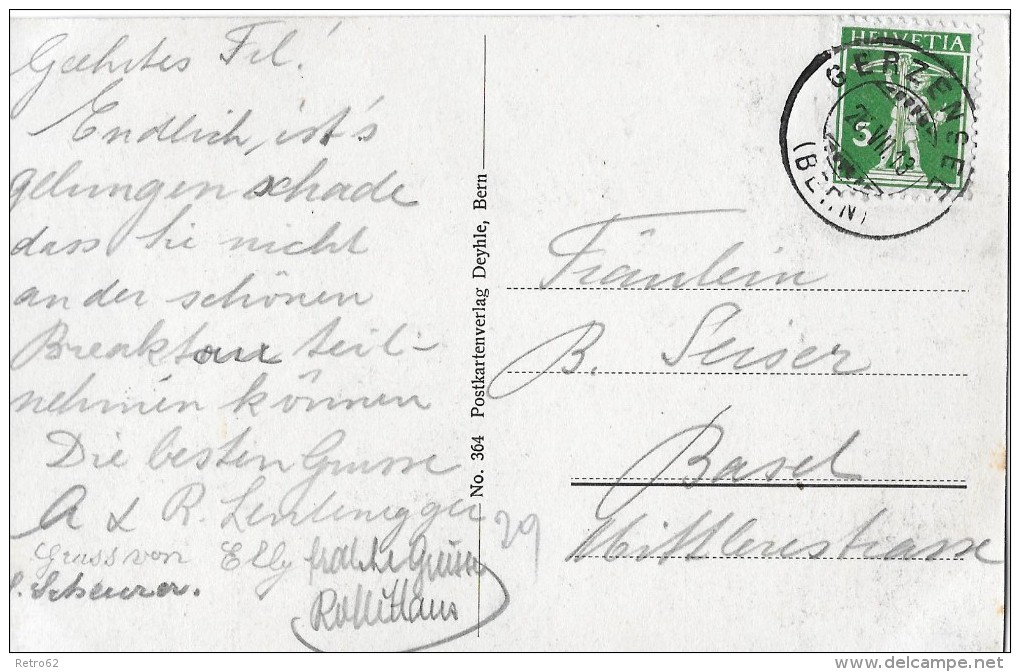 Geehrtes Frl!
Endlich, ist's
gelungen schade
dass Sie nicht
an der schönen
Breaktour teil-
nehmen können
Die besten Grüsse
A & R.
Gruss von Elly
Scheurer.
Rolli Hans
No. 364 Postkartenverlag Deyhle, Bern
HELVETIA
5
GERZENSEE
(BERN)
Fräulein
B. Seiser
Basel
29
Retro62
www.delcampe.net